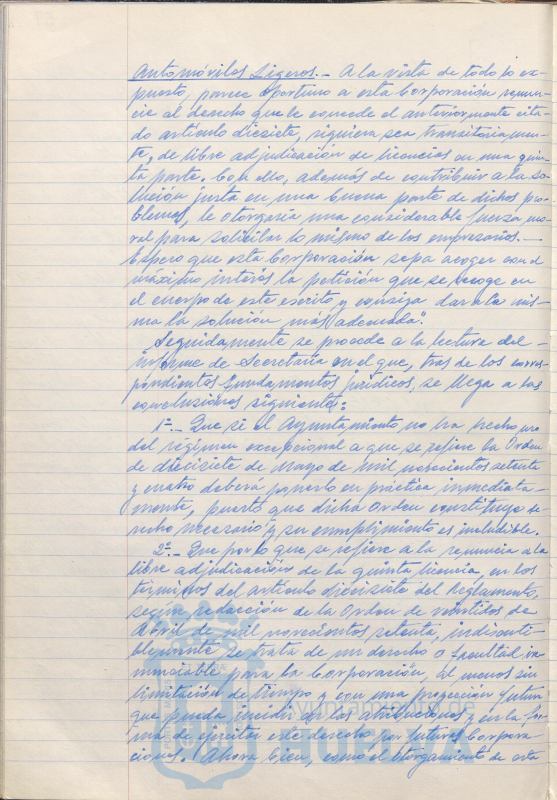 Automóviles Ligeros.- A la vista de todo lo ex-
puesto, parece oportuno a esta Corporación renun-
cie al derecho que le concede el anteriormente cita-
do artículo diecisiete, siquiera sea transitoriamen-
te, de libre adjudicación de licencias en una quin-
ta parte. Con ello, además de contribuir a la so-
lución justa en una buena parte de dichos pro-
blemas, le otorgaría una considerable fuerza mo-
ral para solicitar lo mismo de los empresarios.-
Espero que esta Corporación sepa acoger con el
máximo interés la petición que se recoge en
el cuerpo de este escrito y consiga dar a la mis-
ma la solución más adecuada".
Seguidamente se procede a la lectura del
informe de Secretaría en el que, tras de los corres-
pondientes fundamentos jurídicos, se llega a las
conclusiones siguientes:
1º.- Que si el Ayuntamiento no ha hecho uso
del régimen excepcional a que se refiere la Orden
de diecisiete de Mayo de mil novecientos setenta
y cuatro deberá ponerlo en práctica inmediata-
mente, puesto que dicha Orden constituye de-
recho necesario y su cumplimiento es ineludible.
2º.- Que por lo que se refiere a la renuncia a la
libre adjudicación de la quinta licencia, en los
términos del artículo diecisiete del Reglamento,
según redacción de la Orden de veintidos de
Abril de mil novecientos setenta, indiscuti-
blemente se trata de un derecho o facultad irre-
nunciable para la Corporación, al menos sin
limitación de tiempo y con una proyección futura
que pueda incidir en las atribuciones y en la for-
ma de ejercitar este derecho por futuras Corpora-
ciones. Ahora bien, como el otorgamiento de esta
Ayuntamiento de
HUELVA